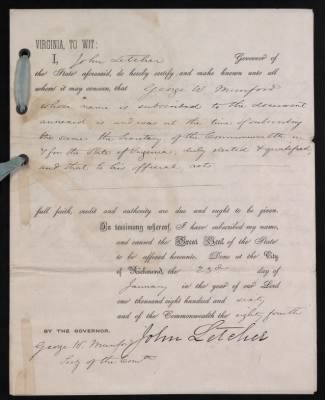 VIRGINIA, TO WIT:
I, John Letcher Governor of
the State aforesaid, do hereby certify and make known unto all
whom it may concern, that George W. Munford
whose name is subscribed to the document
annexed is and was at the time of subscribing
the same the Secretary of the Commonwealth in
& for the State of Virginia, duly elected & qualified
and that to his official acts
full faith, credit and authority are due and ought to be given.
In testimony whereof, I have subscribed my name,
and caused the Great Seal of the State
to be affixed hereunto. Done at the City
of Richmond, the 23d day of
January in the year of our Lord
one thousand eight hundred and sixty
and of the Commonwealth the eighty fourth
BY THE GOVERNOR. John Letcher
George W. Munford
Secy of the Comth